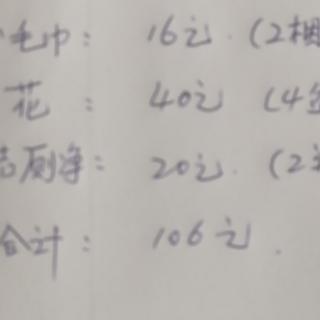 毛巾: 16元. (2
花: 40元 (4
洁厕净: 20元. (2
合计: 106元.